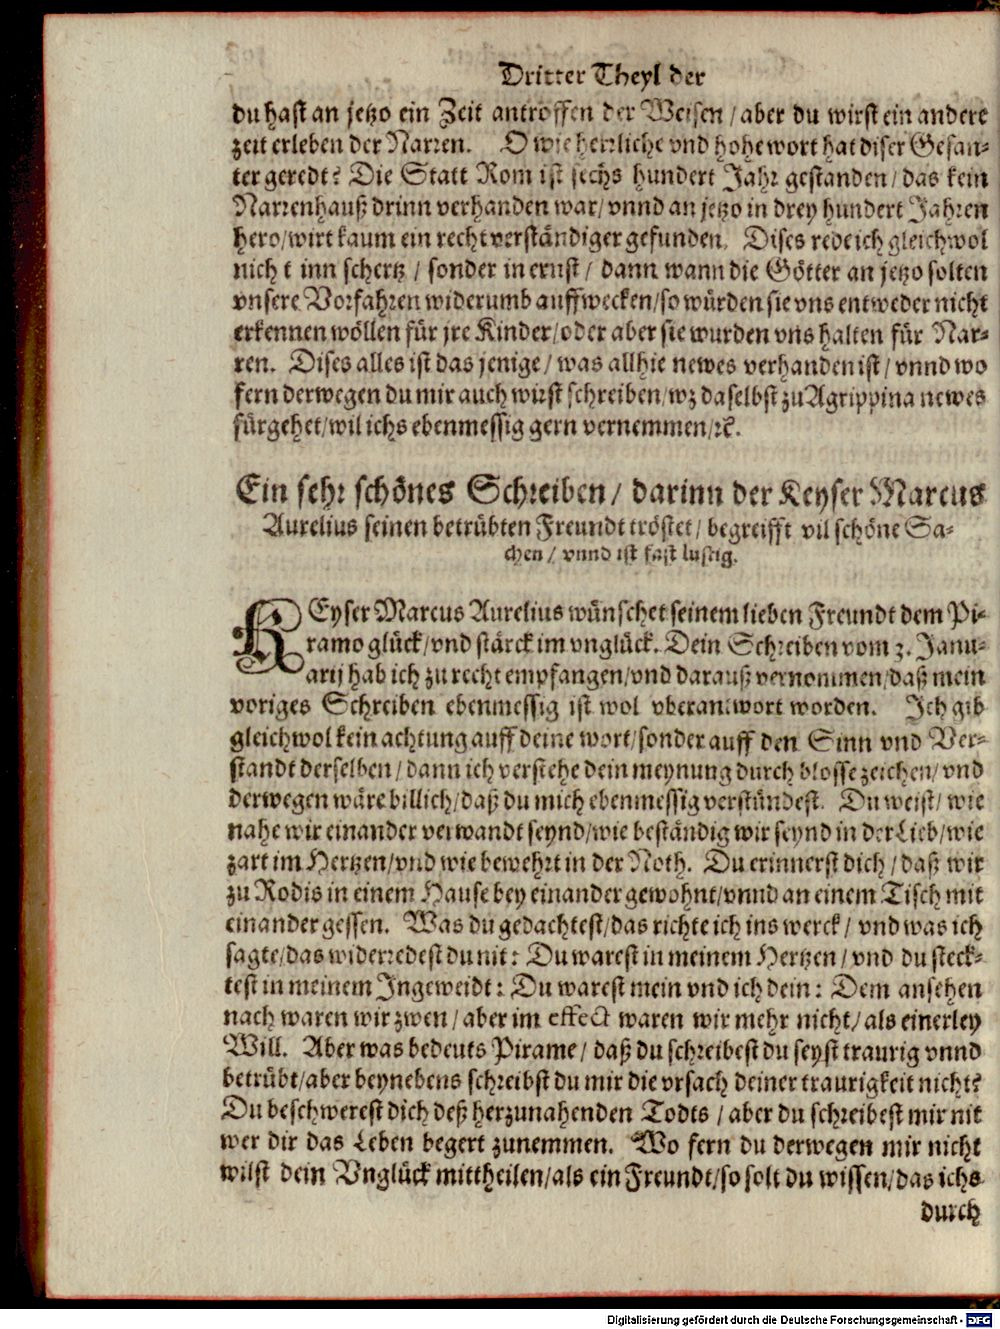 Dritter Theyl der
du hast an jetzo ein Zeit antroffen der Weisen / aber du wirst ein andere
zeit erleben der Narren. O wie herrliche vnd hohe wort hat diser Gesan-
ter geredt? Die Statt Rom ist sechs hundert Jahr gestanden / das kein
Narrenhauß drinn verhanden war / vnnd an jetzo in drey hundert Jahren
hero / wirt kaum ein recht verständiger gefunden. Dises rede ich gleichwol
nich t inn schertz / sonder in ernst / dann wann die Götter an jetzo solten
vnsere Vorfahren widerumb auffwecken / so würden sie vns entweder nicht
erkennen wöllen für jre Kinder / oder aber sie wurden vns halten für Nar-
ren. Dises alles ist das jenige / was allhie newes verhanden ist / vnnd wo
fern derwegen du mir auch wirst schreiben / wz daselbst zu Agrippina newes
fürgehet / wil ichs ebenmessig gern vernemmen / ꝛc.
Ein sehr schönes Schreiben / darinn der Keyser Marcus
Aurelius seinen betrübten Freundt tröstet / begreifft vil schöne Sa-
chen / vnnd ist fast lustig.
KEyser Marcus Aurelius wünschet seinem lieben Freundt dem Pi-
ramo glück / vnd stärck im vnglück. Dein Schreiben vom 3. Janu-
arij hab ich zu recht empfangen / vnd darauß vernommen / daß mein
voriges Schreiben ebenmessig ist wol vberantwort worden. Ich gib
gleichwol kein achtung auff deine wort / sonder auff den Sinn vnd Ver-
standt derselben / dann ich verstehe dein meynung durch blosse zeichen / vnd
derwegen wäre billich / daß du mich ebenmessig verstündest. Du weist / wie
nahe wir einander verwandt seynd / wie beständig wir seynd in der Lieb / wie
zart im Hertzen / vnd wie bewehrt in der Noth. Du erinnerst dich / daß wir
zu Rodis in einem Hause bey einander gewohnt / vnnd an einem Tisch mit
einander gessen. Was du gedachtest / das richte ich ins werck / vnd was ich
sagte / das widerredest du nit: Du warest in meinem Hertzen / vnd du steck-
test in meinem Ingeweidt: Du warest mein vnd ich dein: Dem ansehen
nach waren wir zwen / aber im effect waren wir mehr nicht / als einerley
Will. Aber was bedeuts Pirame / daß du schreibest du seyst traurig vnnd
betrübt / aber beynebens schreibst du mir die vrsach deiner traurigkeit nicht?
Du beschwerest dich deß herzunahenden Todts / aber du schreibest mir nit
wer dir das Leben begert zunemmen. Wo fern du derwegen mir nicht
wilst dein Vnglück mittheilen / als ein Freundt / so solt du wissen / das ichs
durch
Digitalisierung gefördert durch die Deutsche Forschungsgemeinschaft - DFG